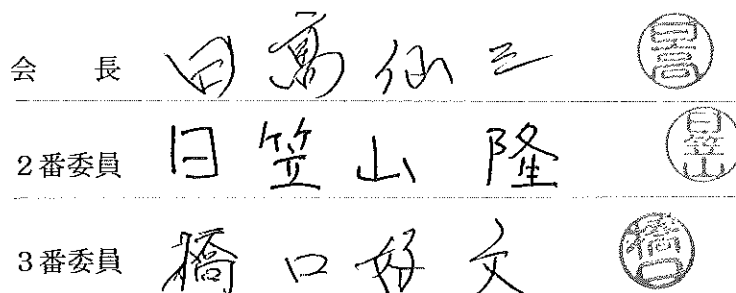 会 長 日高仙三 日高
2番委員 日笠山 隆 日笠山
3番委員 橋口好文 橋口